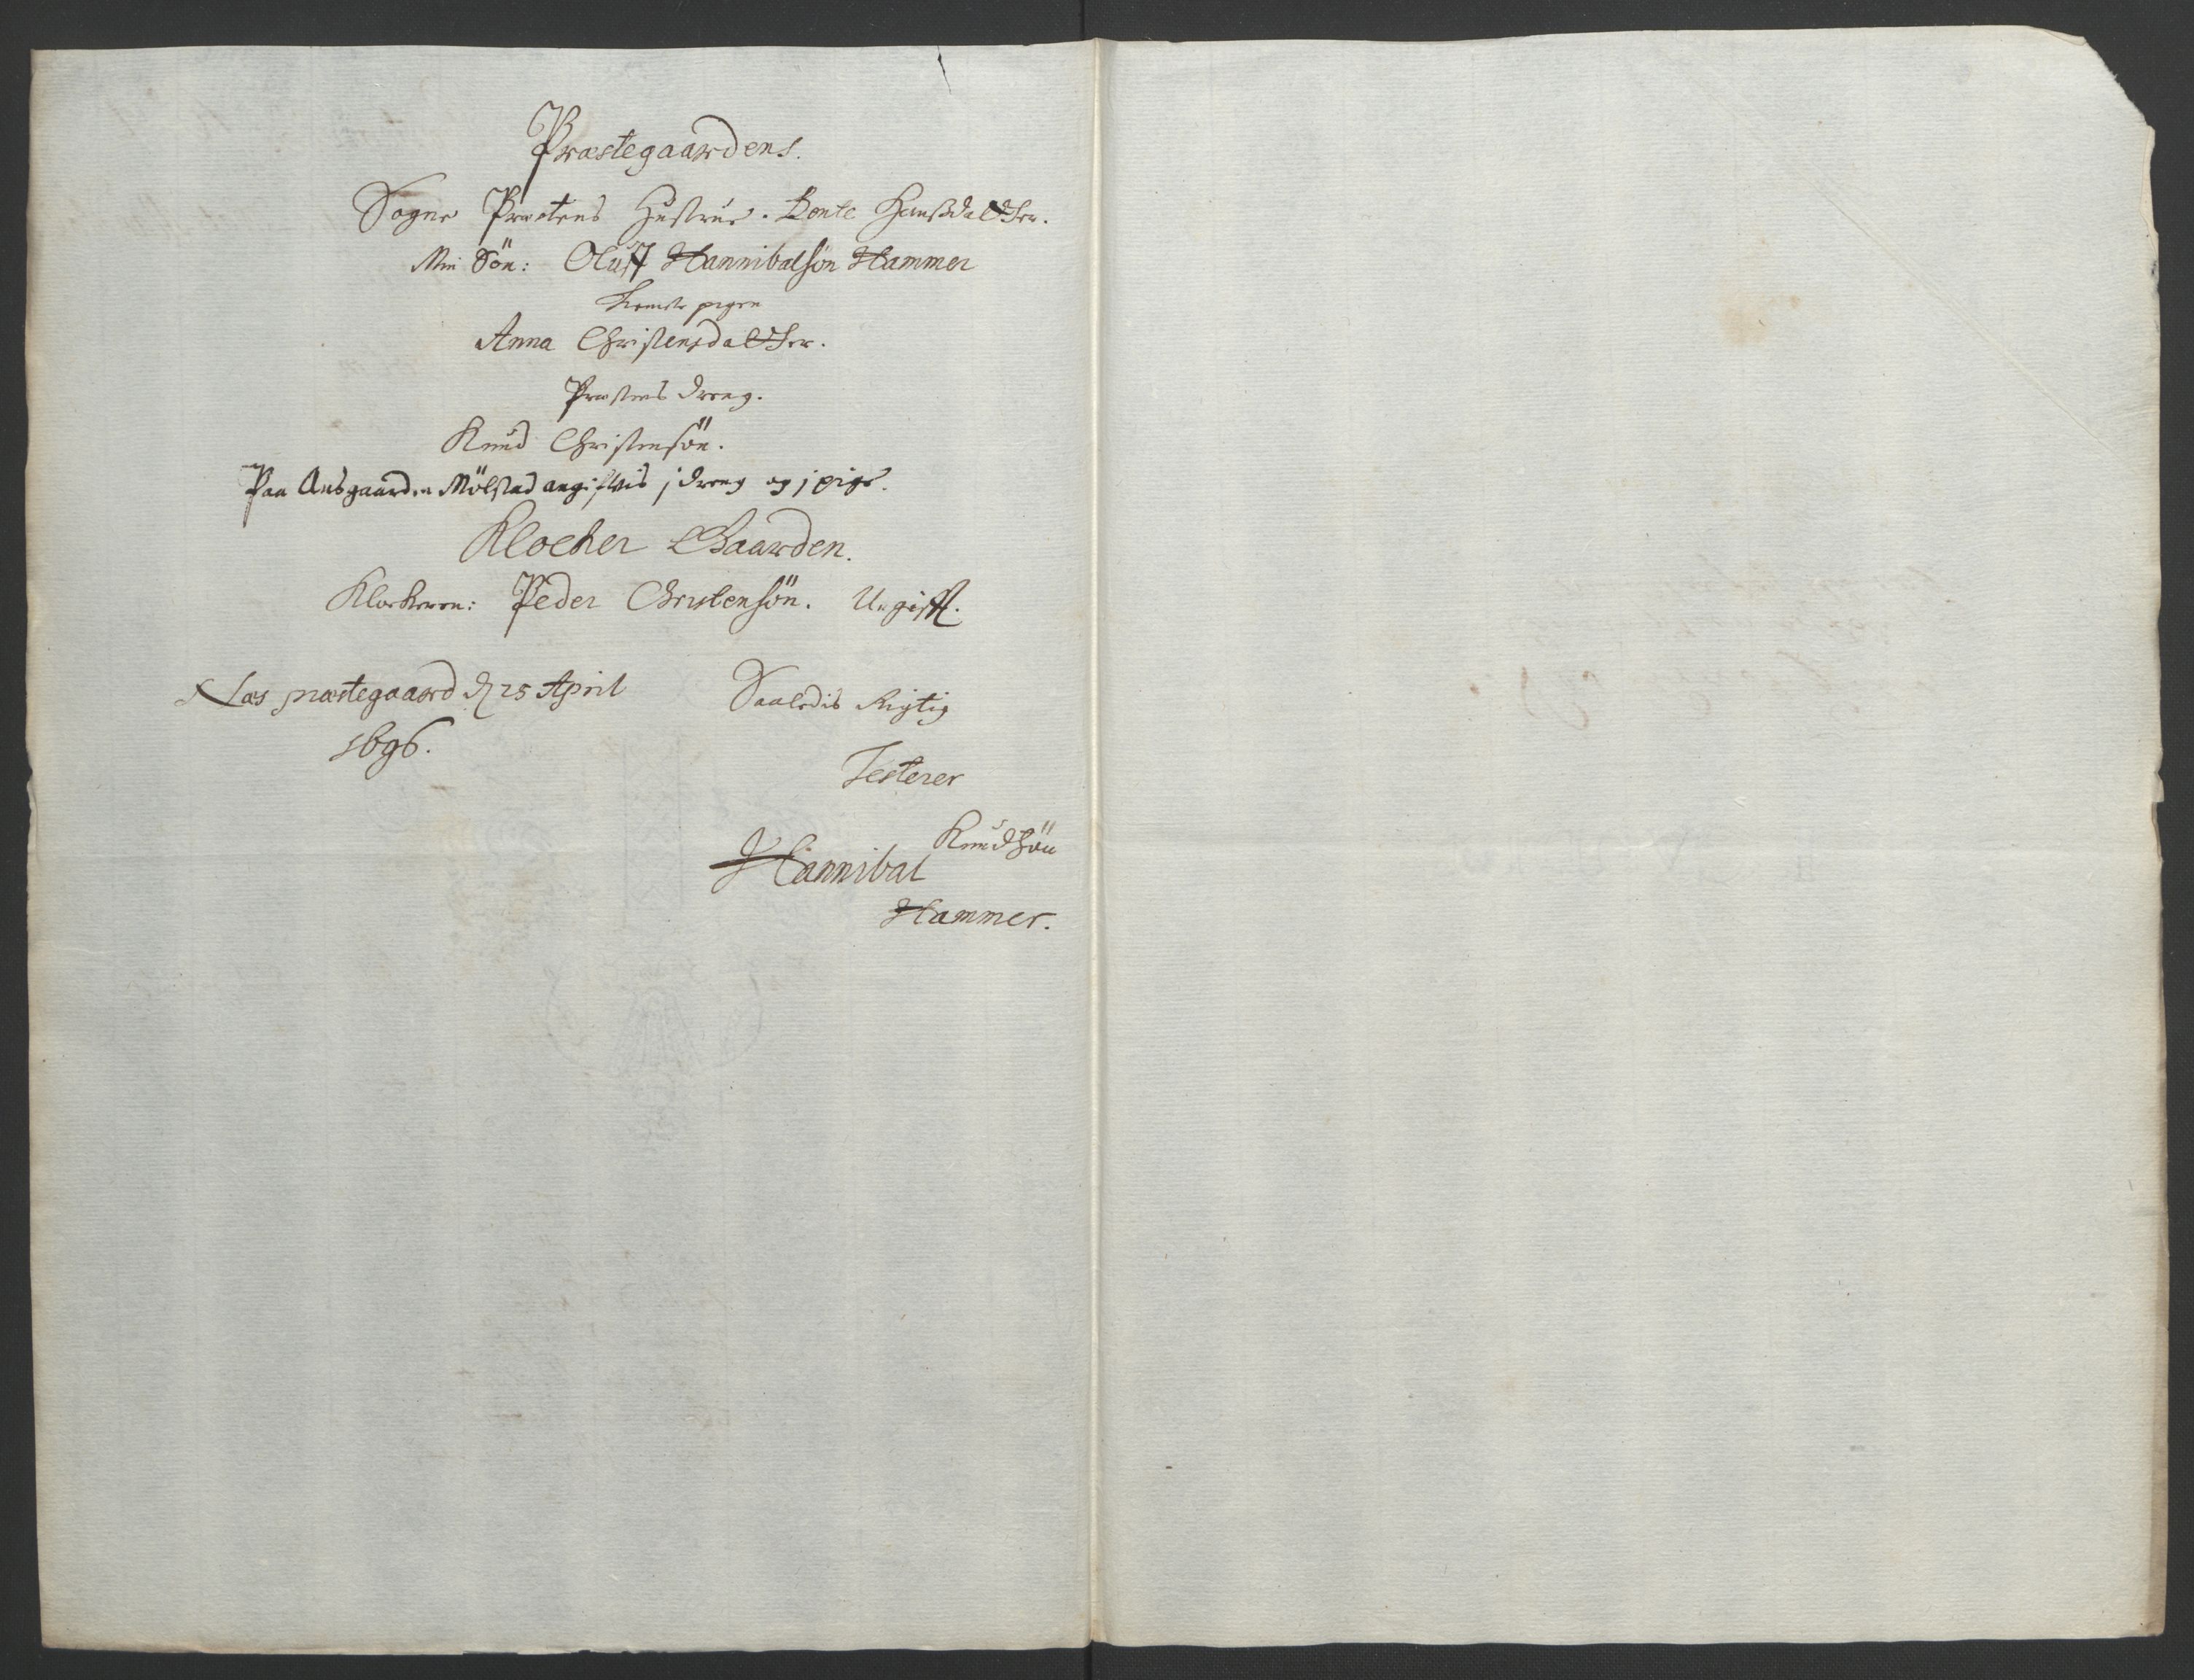 Præstegaardens.
Sogne Præstens Hustrue. Bente Hanßdaatter.
Min Sön: Oluff Hannibalsøn Hammer
pigen
Anna Christensdaatter.
Præstens dreng.
Knud Christensön.
Paa Ausgaarden Mölstad angifvis j dreng og j pige.
Klocker Gaarden.
Klockeren: Peder Christensön. Ugifft.
Næs præstegaard d 25 April
1696.
Saaledis Rigtig
Testerer
Hannibal Knudsön
Hammer.